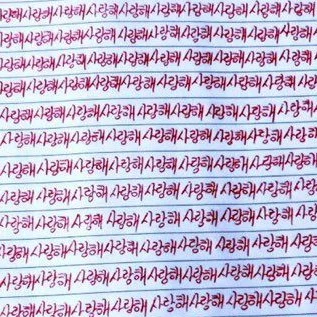 사랑해사랑해사랑해사랑해사랑해사랑해사랑해사랑해사랑해
사랑해사랑해사랑해사랑해사랑해사랑해사랑해사랑해사랑해
사랑해사랑해사랑해사랑해사랑해사랑해사랑해사랑해사랑해
사랑해사랑해사랑해사랑해사랑해사랑해사랑해사랑해사랑해
사랑해사랑해사랑해사랑해사랑해사랑해사랑해사랑해
사랑해사랑해사랑해사랑해사랑해사랑해사랑해사랑해사랑
사랑해사랑해사랑해사랑해사랑해사랑해사랑해사랑해
사랑해 사랑해사랑해사랑해사랑해사랑해사랑해사랑해
사랑해사랑해사랑해 사랑해사랑해사랑해사랑해사랑해
사랑해사랑해사랑해사랑해사랑해 사랑해 사랑해사랑해
사랑해사랑해사랑해사랑해사랑해사랑해사랑해사랑해
사랑해사랑해사랑해사랑해 사랑해사랑해사랑해사랑해